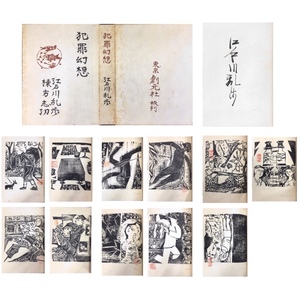 犯罪幻想
江戸川乱歩
棟方志功
犯罪幻想
江戸川乱歩
東京 創元社 版刊
江戸川乱歩